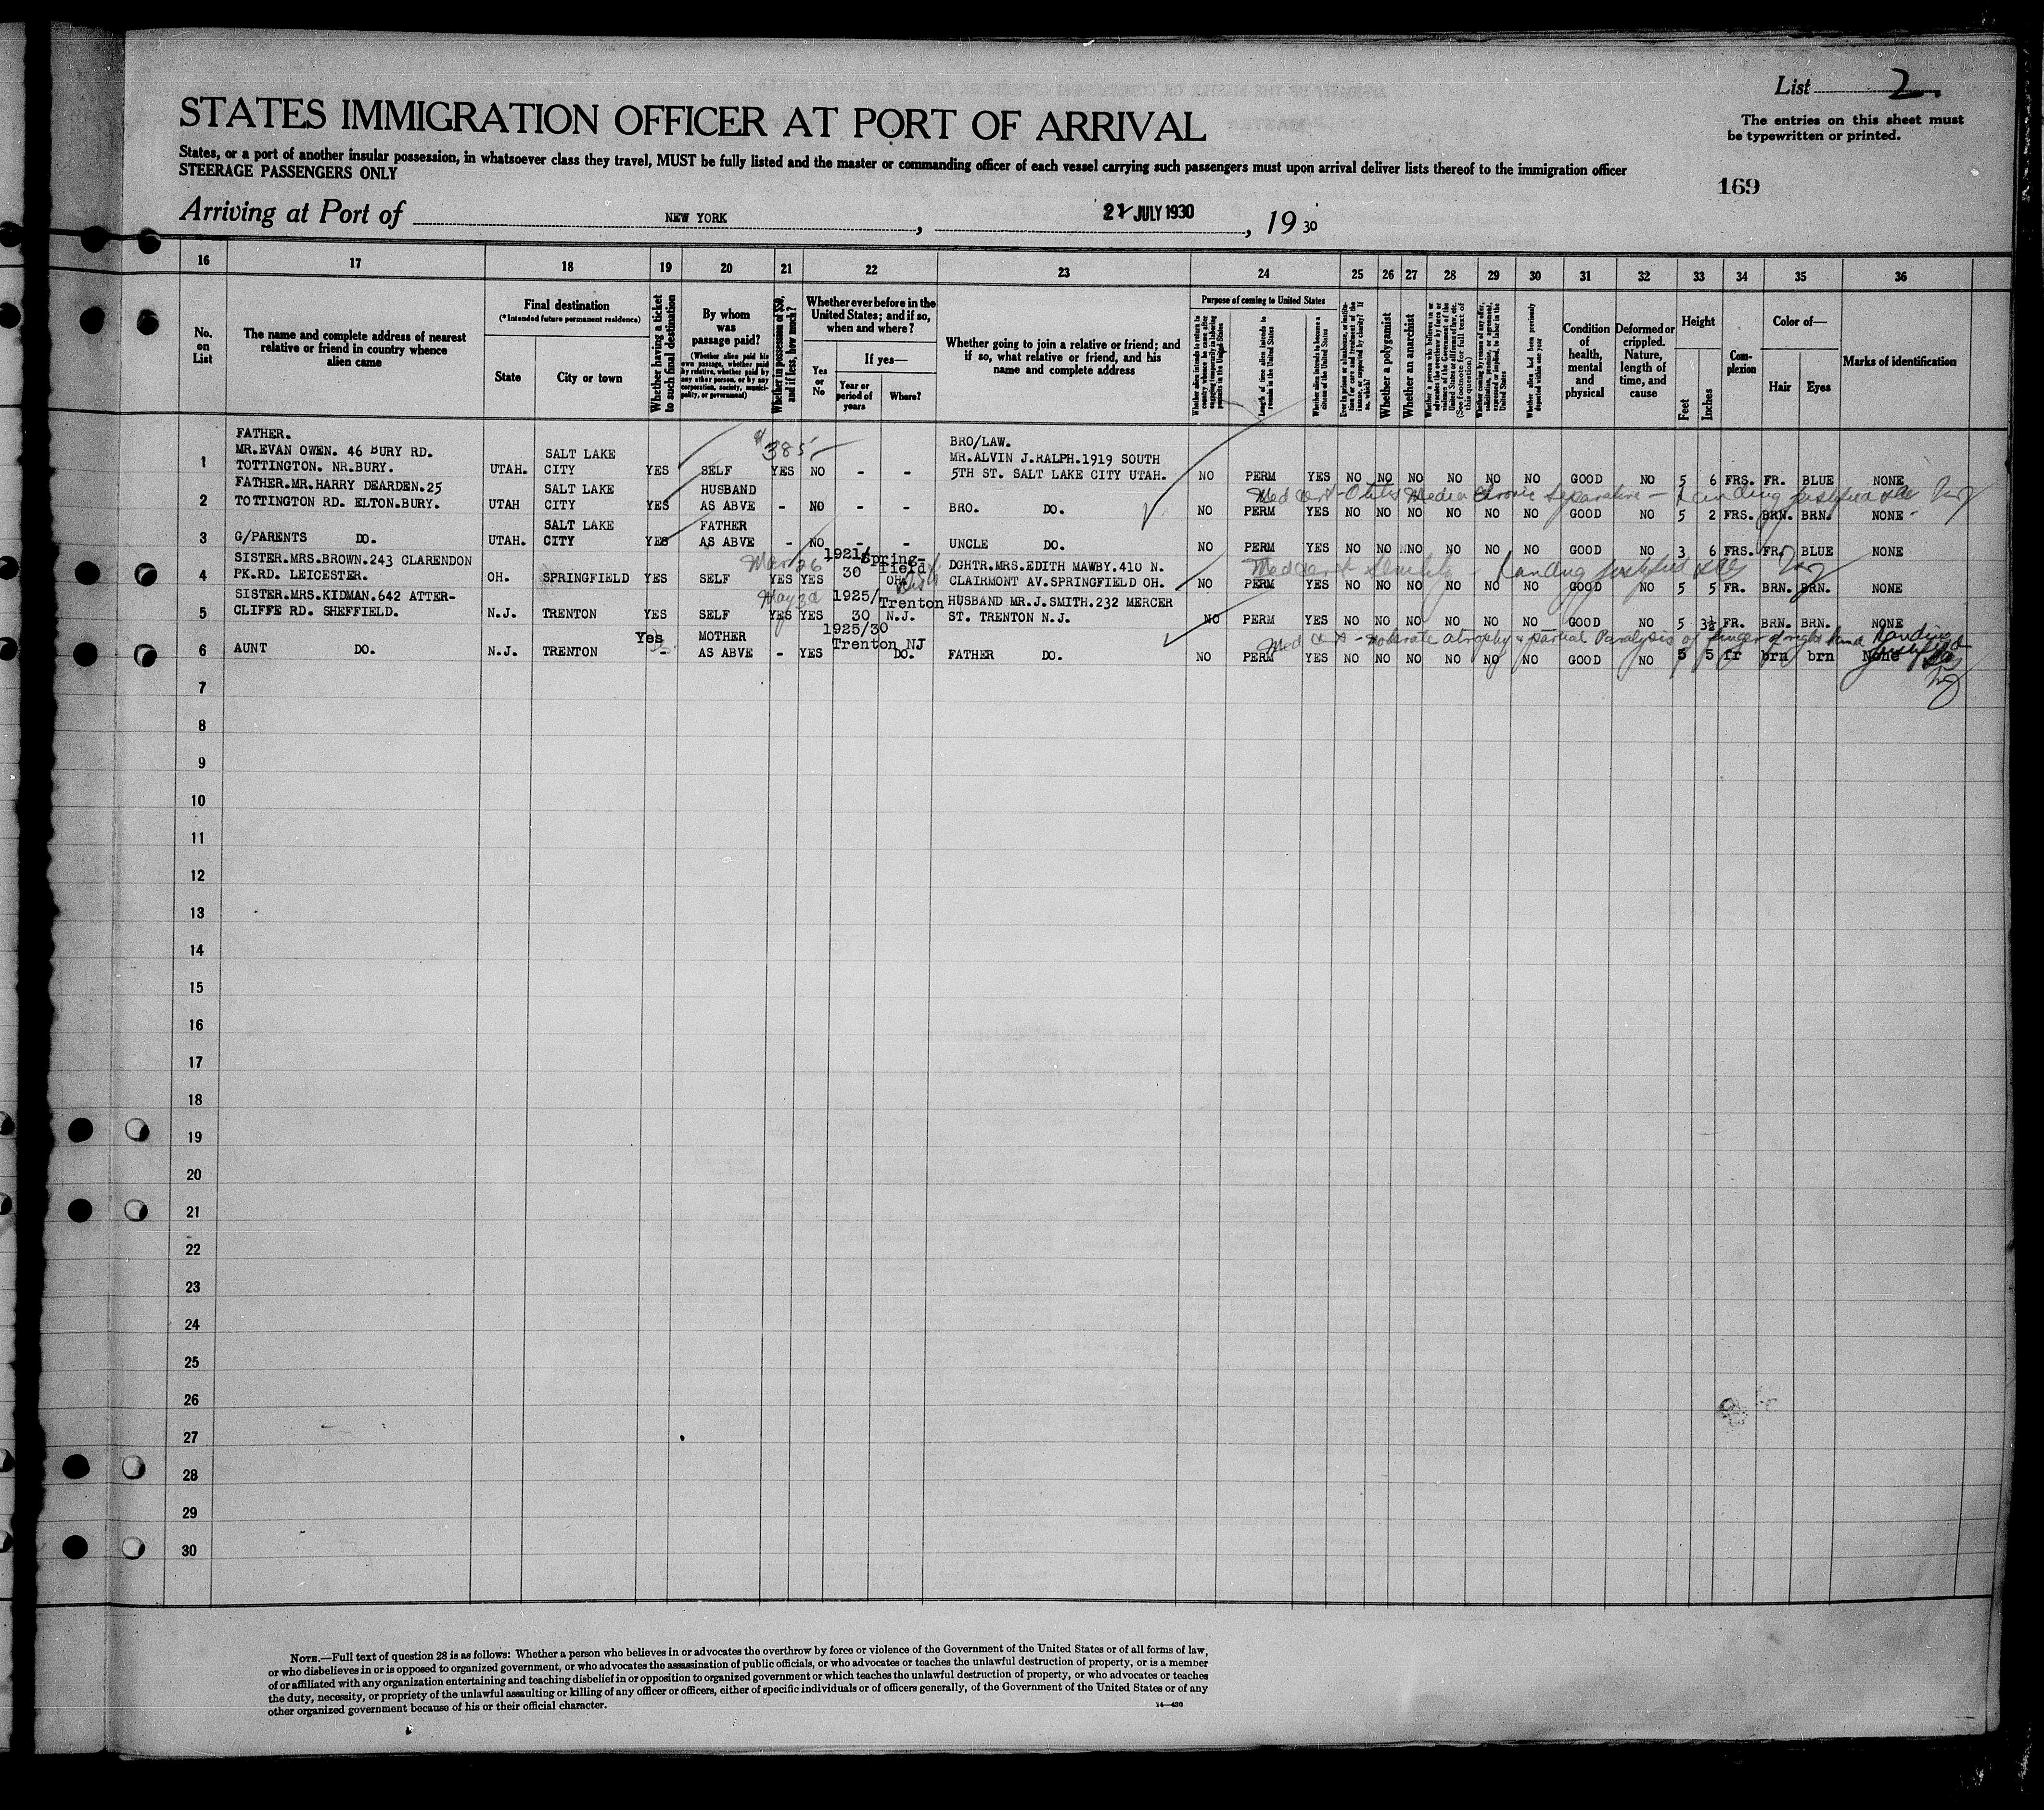 List 2.
STATES IMMIGRATION OFFICER AT PORT OF ARRIVAL
The entries on this sheet must
be typewritten or printed.
States, or a port of another insular possession, in whatsoever class they travel, MUST be fully listed and the master or commanding officer of each vessel carrying such passengers must upon arrival deliver lists thereof to the immigration officer
STEERAGE PASSENGERS ONLY
169
Arriving at Port of NEW YORK, 21 JULY 1930, 19 30
16 17 18 19 20 21 22 23 24 25 26 27 28 29 30 31 32 33 34 35 36
No. on List
The name and complete address of nearest relative or friend in country whence alien came
Final destination
(*Intended future permanent residence)
State
City or town
Whether having a ticket to such final destination
By whom was passage paid?
(Whether alien paid his own passage, whether paid by relative, whether paid by any other person, or by any corporation, society, municipality, or government)
Whether in possession of $50, and if less, how much?
Whether ever before in the United States; and if so, when and where?
Yes or No
If yes—
Year or period of years
Where?
Whether going to join a relative or friend; and if so, what relative or friend, and his name and complete address
Purpose of coming to United States
Length of time alien intends to remain in the United States
Whether alien intends to become a citizen of the United States
Whether a polygamist
Whether an anarchist
Whether alien had been previously deported within one year
Condition of health, mental and physical
Deformed or crippled. Nature, length of time, and cause
Height
Feet
Inches
Complexion
Color of—
Hair
Eyes
Marks of identification
$385
1 FATHER. MR.EVAN OWEN. 46 BURY RD. TOTTINGTON. NR.BURY. UTAH. SALT LAKE CITY YES SELF YES NO - - BRO/LAW. MR.ALVIN J.RALPH.1919 SOUTH 5TH ST. SALT LAKE CITY UTAH. NO PERM YES NO NO NO NO NO NO GOOD NO 5 6 FRS. FR. BLUE NONE
Med Cert - Otitis Media Chronic - Landing justified
2 FATHER.MR.HARRY DEARDEN.25 TOTTINGTON RD. ELTON.BURY. UTAH SALT LAKE CITY YES HUSBAND AS ABVE - NO - - BRO. DO. NO PERM YES NO NO NO NO NO NO GOOD NO 5 2 FRS. BRN. BRN. NONE
3 G/PARENTS DO. UTAH. SALT LAKE CITY YES FATHER AS ABVE - NO - - UNCLE DO. NO PERM YES NO NO NO NO NO NO GOOD NO 3 6 FRS. FR. BLUE NONE
Med cert Senility - Landing justified
4 SISTER.MRS.BROWN.243 CLARENDON PK.RD. LEICESTER. OH. SPRINGFIELD YES SELF YES YES 1921/30 Springfield OH. DGHTR.MRS.EDITH MAWBY.410 N. CLAIRMONT AV.SPRINGFIELD OH. NO PERM YES NO NO NO NO NO NO GOOD NO 5 5 FR. BRN. BRN. NONE
5 SISTER.MRS.KIDMAN.642 ATTER-CLIFFE RD. SHEFFIELD. N.J. TRENTON YES SELF YES YES 1925/30 Trenton N.J. HUSBAND MR.J.SMITH.232 MERCER ST. TRENTON N.J. NO PERM YES NO NO NO NO NO NO GOOD NO 5 3½ FR. BRN. BRN. NONE
Med Cert - moderate atrophy & partial Paralysis of finger of right hand Landing justified
6 AUNT DO. N.J. TRENTON Yes - MOTHER AS ABVE - YES 1925/30 Trenton NJ DO. FATHER DO. NO PERM YES NO NO NO NO NO NO GOOD NO 5 5 fr brn brn None
7
8
9
10
11
12
13
14
15
16
17
18
19
20
21
22
23
24
25
26
27
28
29
30
NOTE.—Full text of question 28 is as follows: Whether a person who believes in or advocates the overthrow by force or violence of the Government of the United States or of all forms of law,
or who disbelieves in or is opposed to organized government, or who advocates the assassination of public officials, or who advocates or teaches the unlawful destruction of property, or is a member
of or affiliated with any organization entertaining and teaching disbelief in or opposition to organized government or which teaches the unlawful destruction of property, or who advocates or teaches
the duty, necessity, or propriety of the unlawful assaulting or killing of any officer or officers, either of specific individuals or of officers generally, of the Government of the United States or of any
other organized government because of his or their official character.
14—430